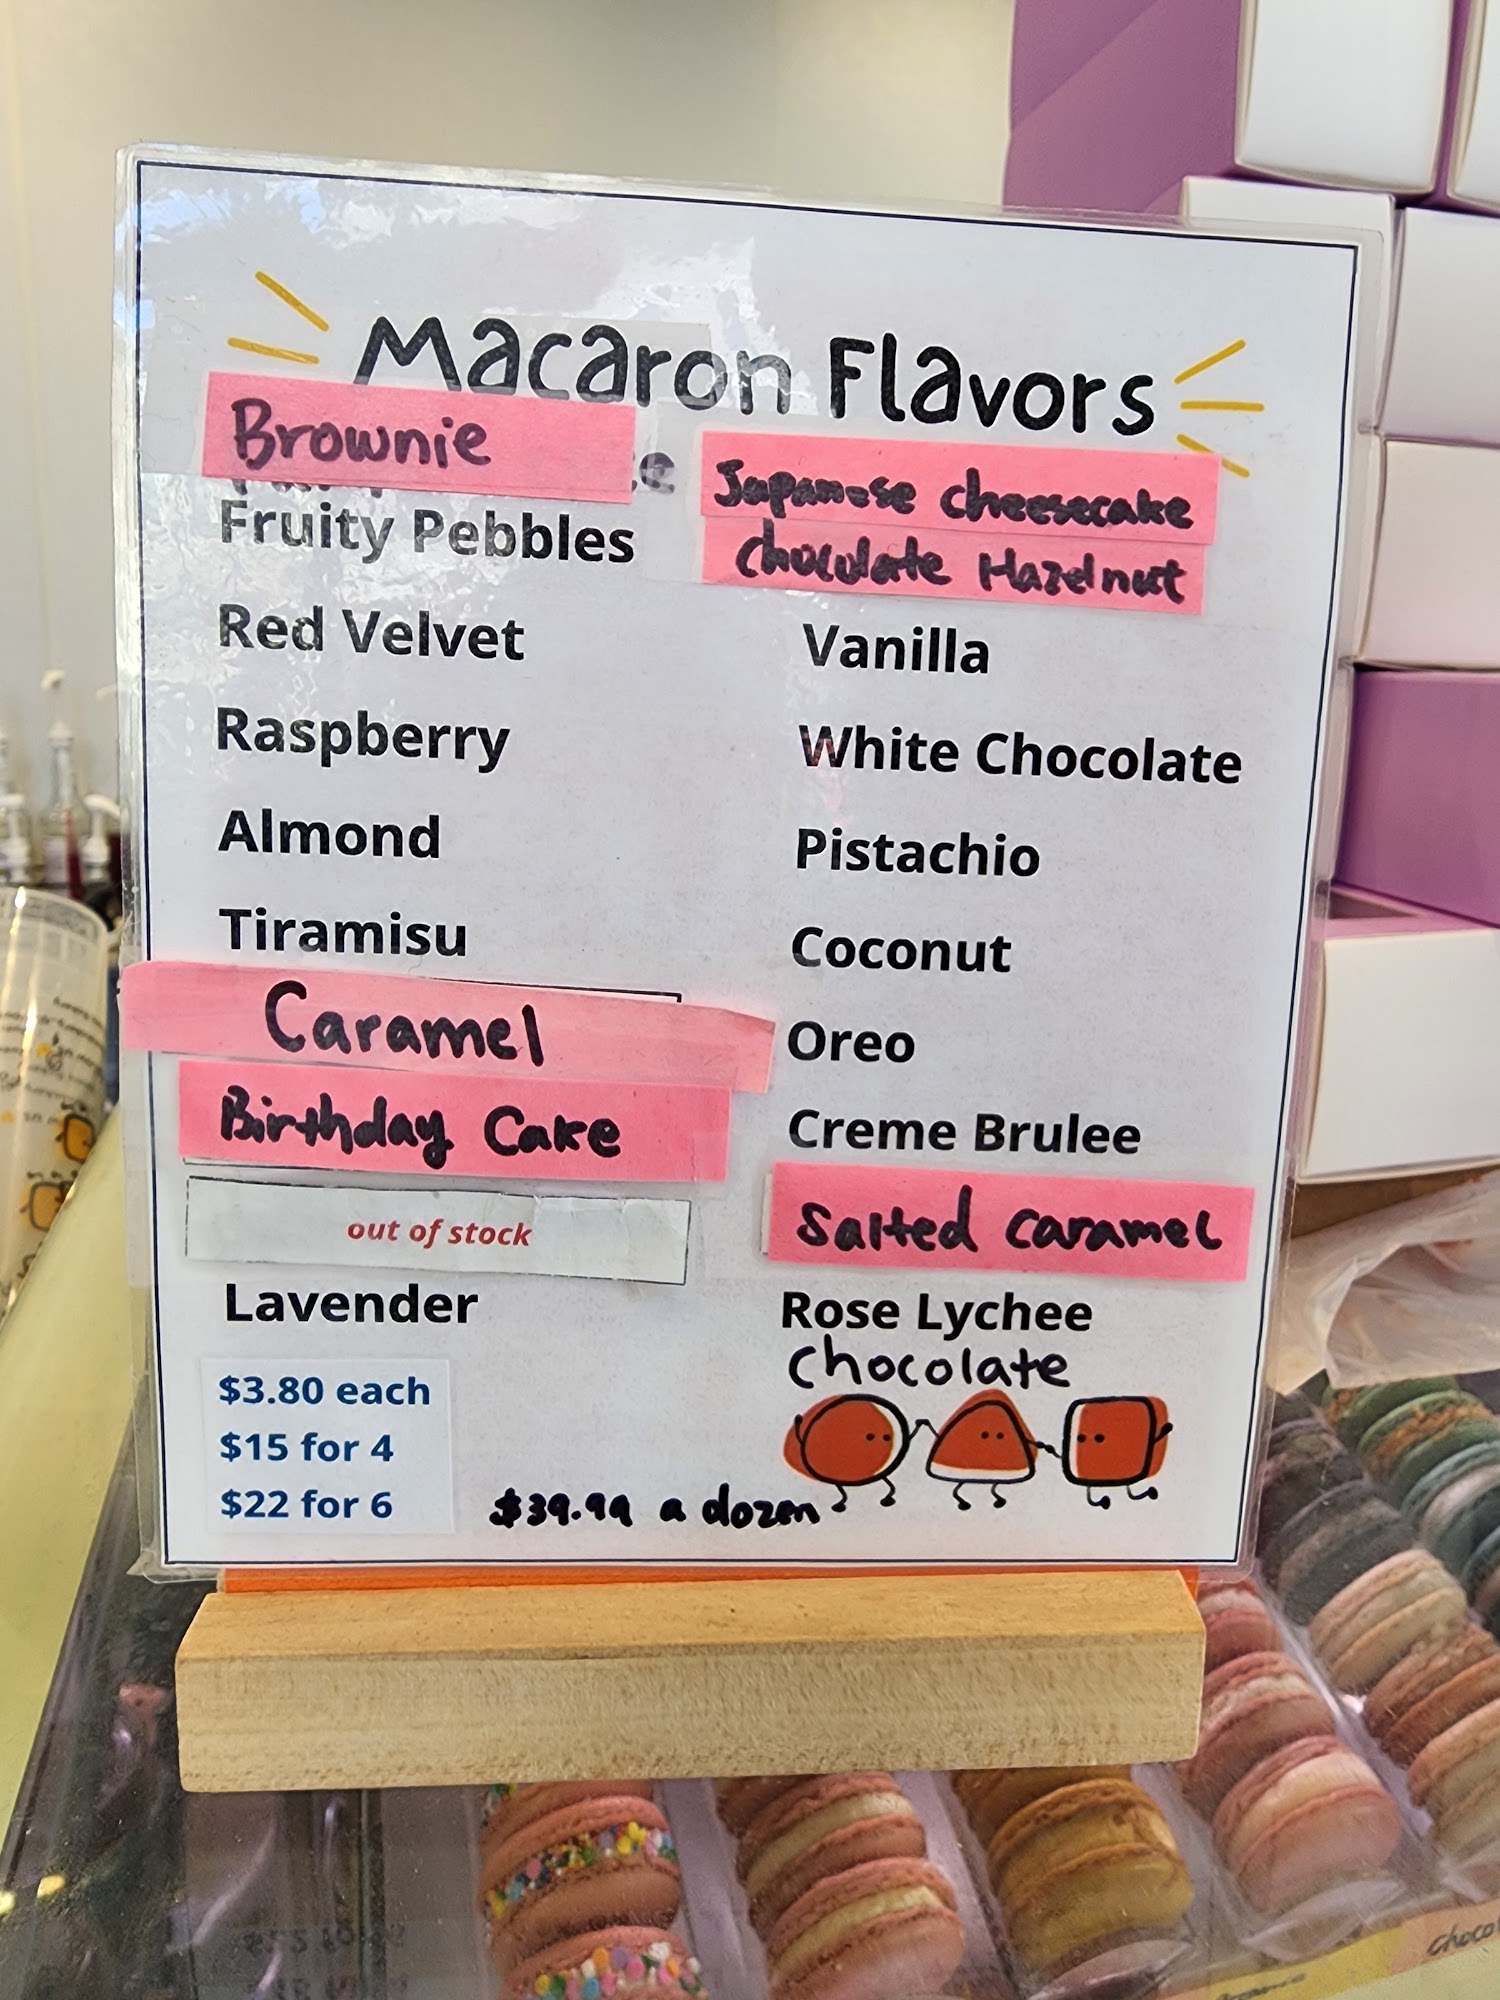 Macaron Flavors
Brownie
Fruity Pebbles
Red Velvet
Raspberry
Almond
Tiramisu
Caramel
Birthday Cake
out of stock
Lavender
$3.80 each
$15 for 4
$22 for 6
$39.99 a dozen
Japanese cheesecake
chocolate Hazelnut
Vanilla
White Chocolate
Pistachio
Coconut
Oreo
Creme Brulee
Salted caramel
Rose Lychee
chocolate